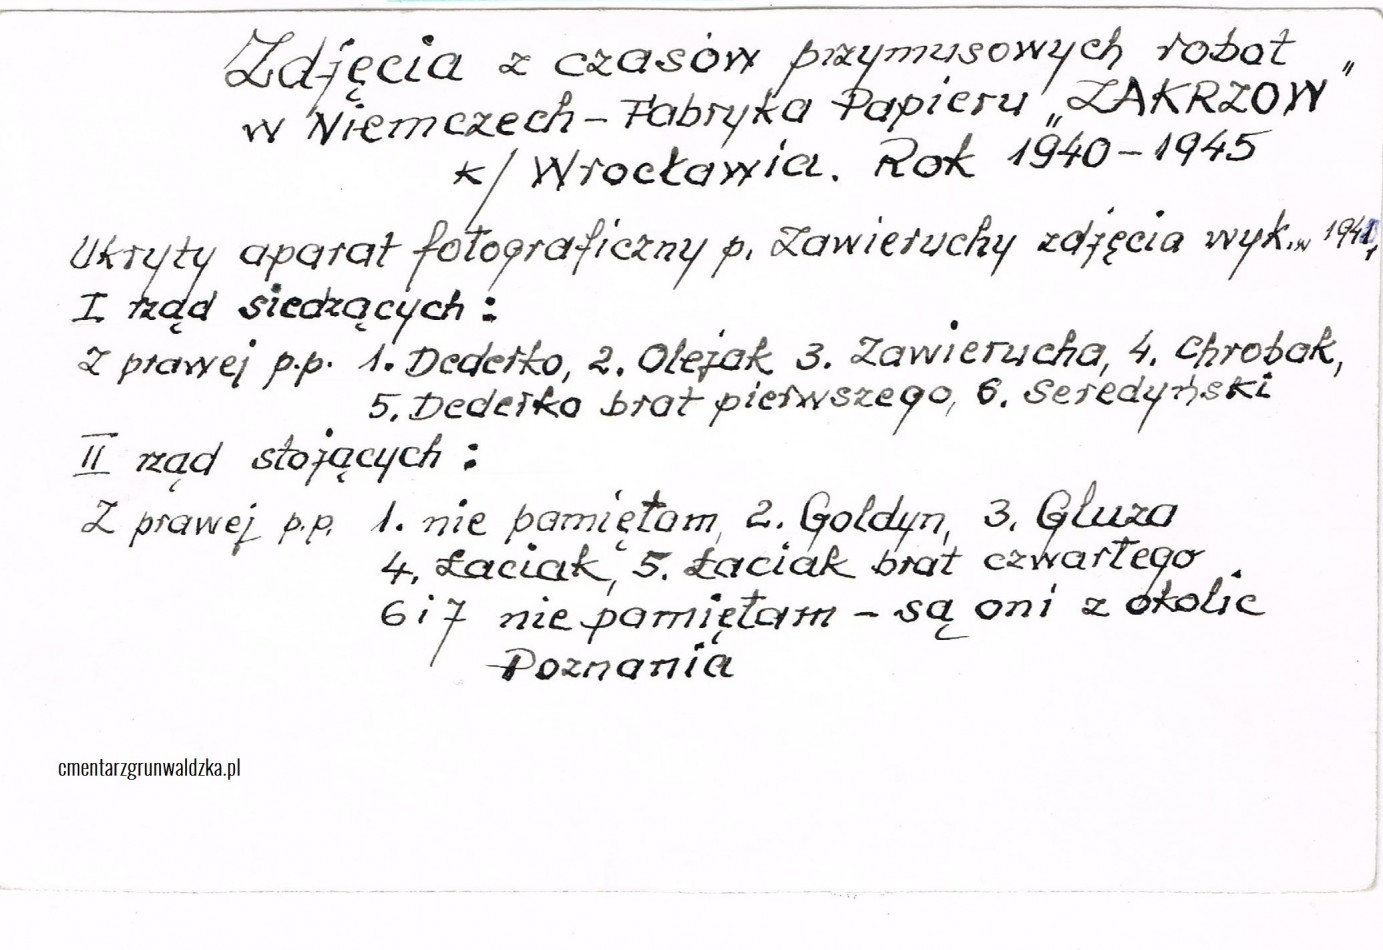 Zdjęcia z czasów przymusowych robót
w Niemczech - Fabryka Papieru „ZAKRZOW"
k/ Wrocławia. Rok 1940-1945
Ukryty aparat fotograficzny p. Zawieruchy zdjęcia wyk. w
I rząd siedzących:
Z prawej p.p. 1. Dederko, 2. Olejak 3. Zawierucha, 4. Chrobak,
5. Dederko brat pierwszego, 6. Seredyński
II rząd stojących:
Z prawej p.p. 1. nie pamiętam, 2. Gołdyn, 3. Gluza
4. Łaciak, 5. Łaciak brat czwartego
6 i 7 nie pamiętam - są oni z okolic
Poznania
cmentarzgrunwaldzka.pl